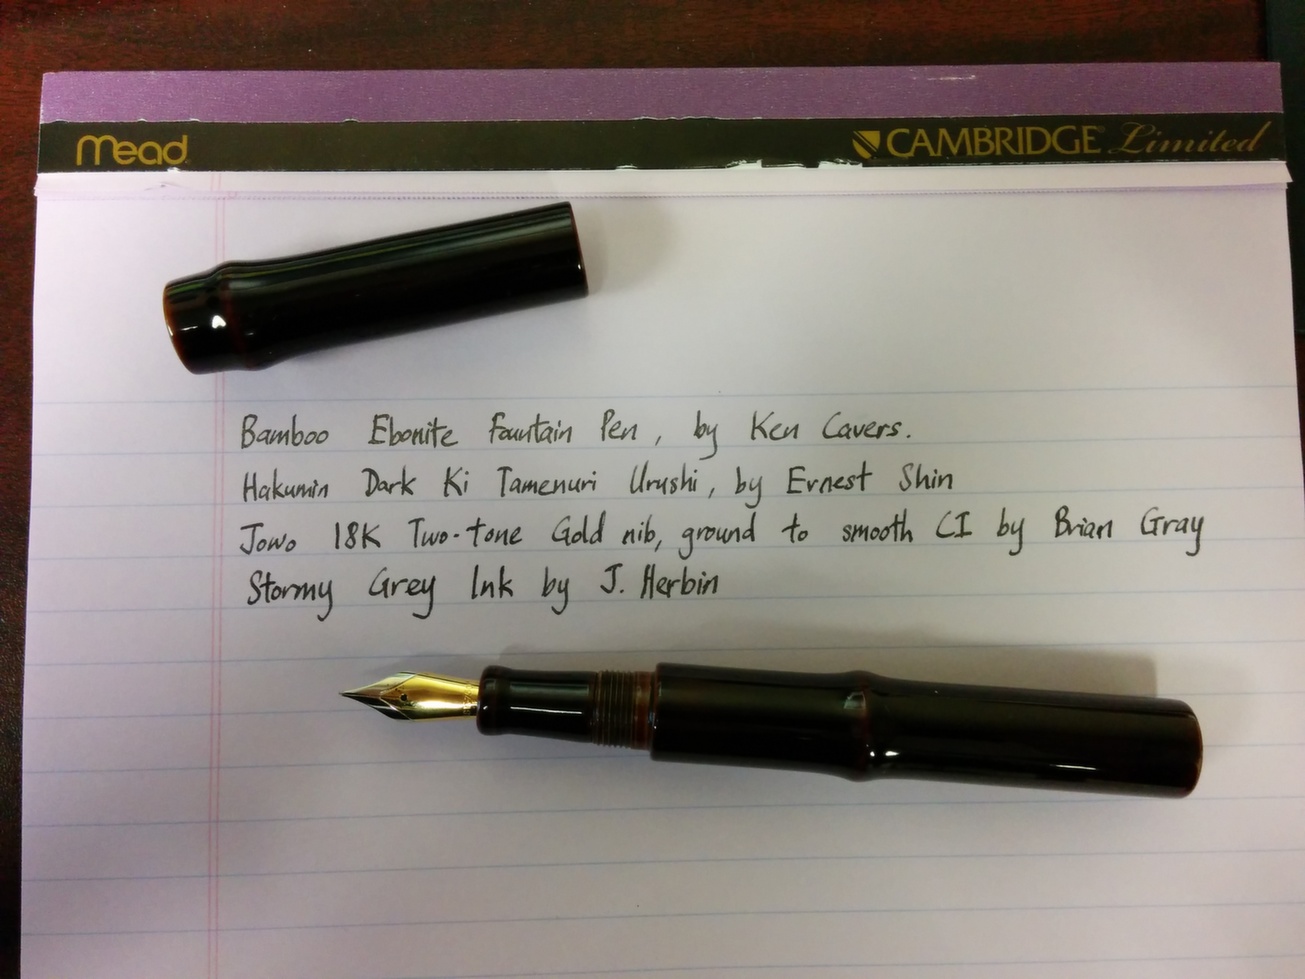 Mead
CAMBRIDGE Limited
Bamboo Ebonite Fountain Pen, by Ken Cavers.
Hakumin Dark Ki Tamenuri Urushi, by Ernest Shin
Jowo 18K Two-tone Gold nib, ground to smooth CI by Brian Gray
Stormy Grey Ink by J. Herbin